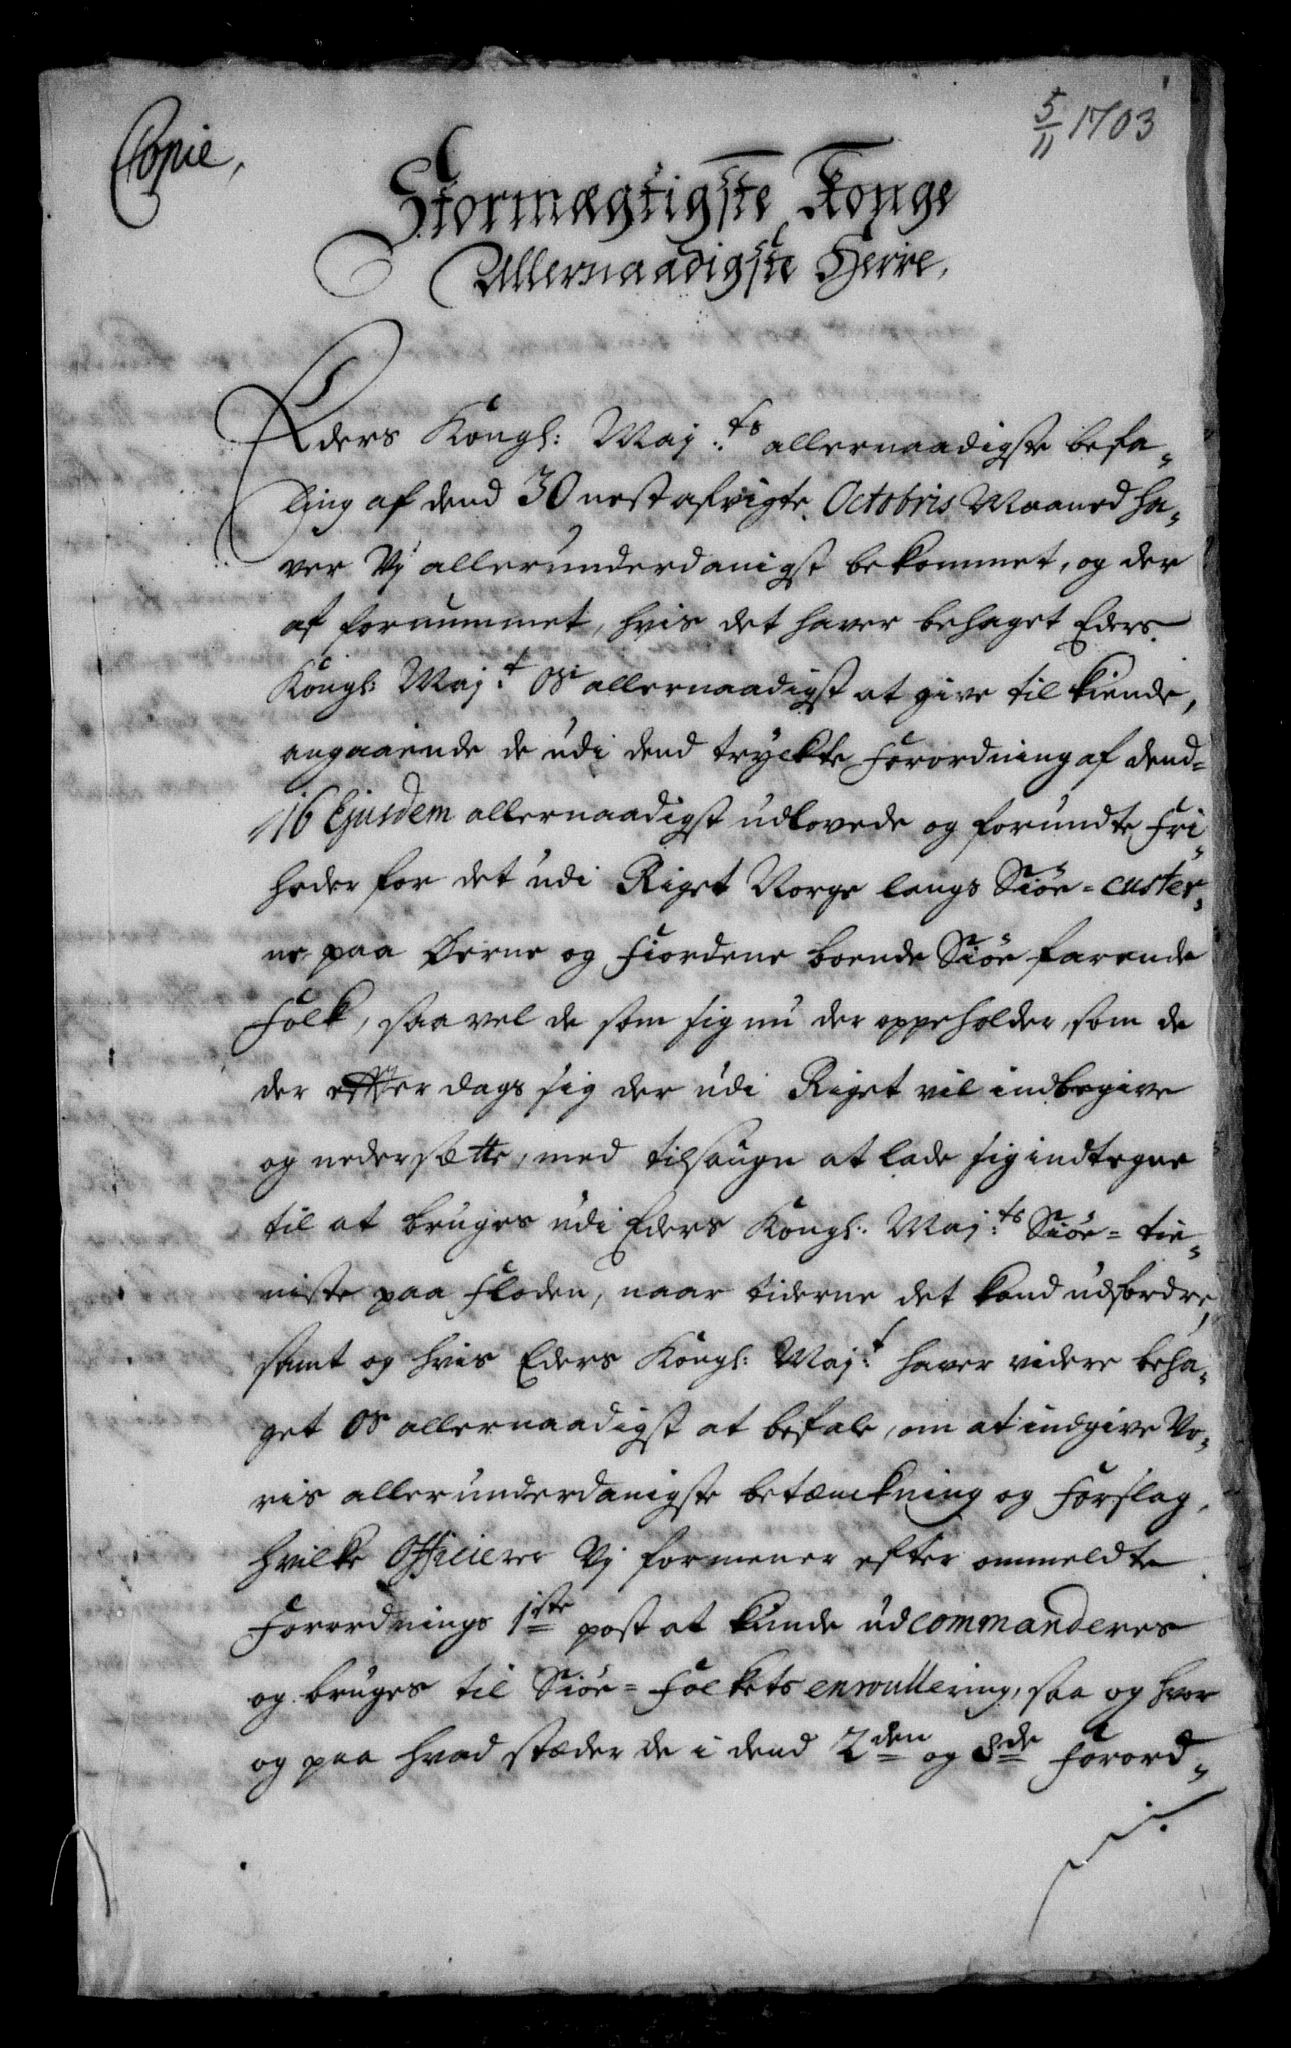 5/11 1703
Copie,
Stormægtigste Konge
Allernaadigste Herre,
Eders Kongl: Maj:ts allernaadigste befa„
ling af dend 30 nest afvigte Octobris Maaned ha„
ver Vj allerunderdanigst bekommet, og der
af fornummet, hvis det haver behaget Eders
Kongl: Maj:t Os allernaadigst at give til kiende,
angaaende de udi dend tryckte Forordning af dend=
16 Ejusdem allernaadigst udlovede og forundte Fri„
heder for det udi Riget Norge langs Siöe=custer„
ne paa Øerne og Fiordene boende Siöe farende
Folk, saavel de som sig nu der oppeholder, som de
der effter dags sig der udi Riget vil indbegive
og nedersætte, med tilsaugn at lade sig indtegne
til at bruges udi Eders Kongl: Maj:ts Siöe=tie„
niste paa Floden, naar tiderne det kand udfordre,
samt og hvis Eders Kongl: Maj:t haver videre beha„
get Os allernaadigst at befale, om at indgive Vo„
ris allerunderdanigste betænckning og Forslag,
hvilke Officierer Vj formener efter ommeldte
Forordnings 1ste post at kunde udcommanderes
og bruges til Siöe=Folkets enroullering, saa og hvor
og paa hvad stæder de i dend 2den og 8de Forord„